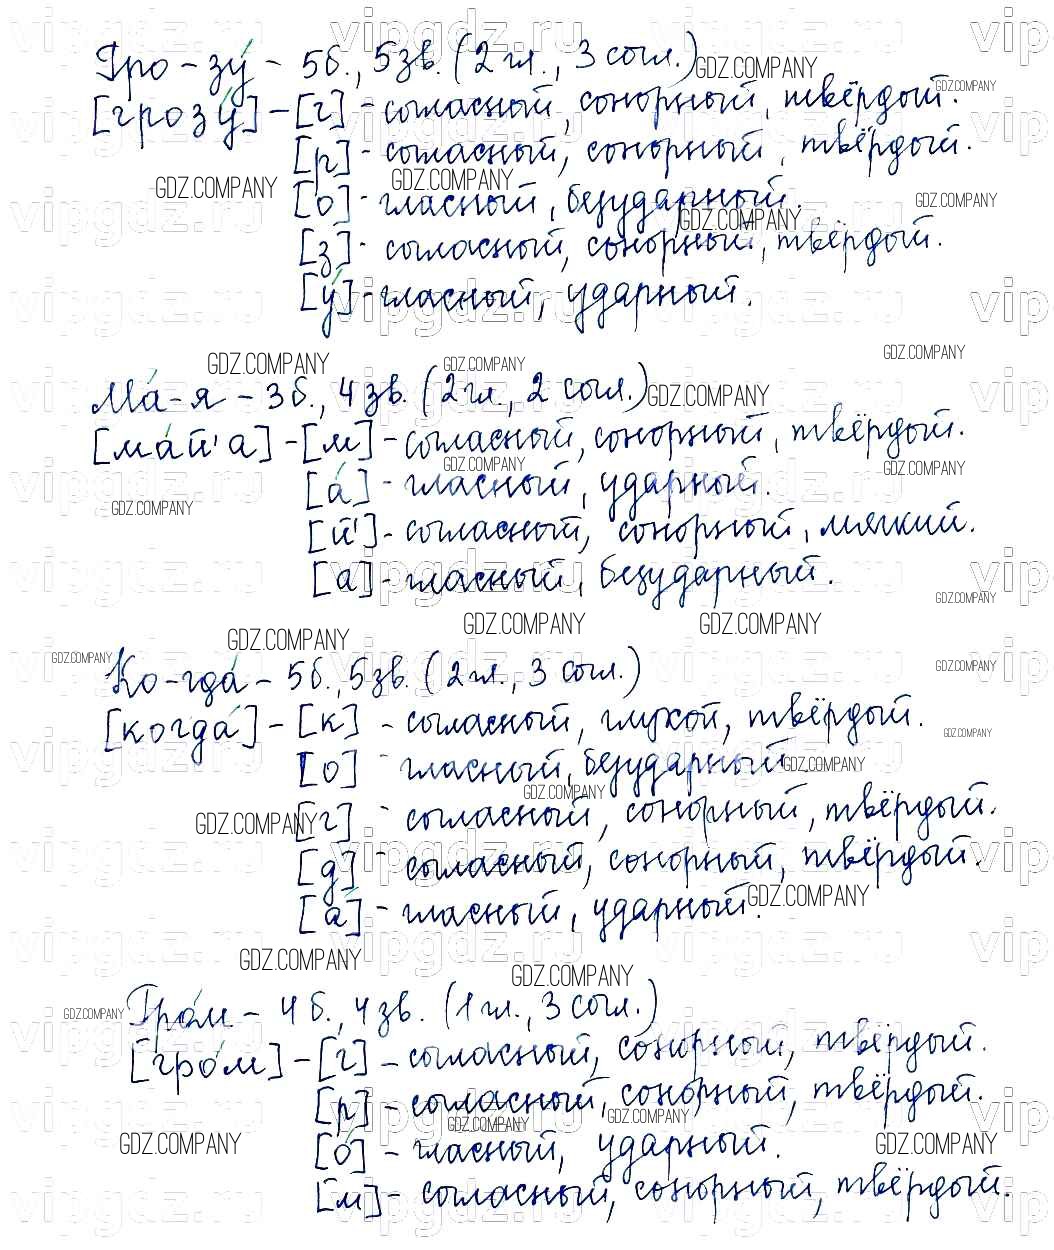 Гро - зу́ - 5б., 5зв. (2 гл., 3 согл.)
[грозу́] - [г] - согласный, сонорный, твёрдый.
[р] - согласный, сонорный, твёрдый.
[о] - гласный, безударный.
[з] - согласный, сонорный, твёрдый.
[у́] - гласный, ударный.
Ма́-я - 3б., 4 зв. (2 гл., 2 согл.)
[ма́й'а] - [м] - согласный, сонорный, твёрдый.
[а́] - гласный, ударный.
[й'] - согласный, сонорный, мягкий.
[а] - гласный, безударный.
Ко-гда́ - 5б., 5зв. (2 гл., 3 согл.)
[когда́] - [к] - согласный, глухой, твёрдый.
[о] - гласный, безударный.
[г] - согласный, сонорный, твёрдый.
[д] - согласный, сонорный, твёрдый.
[а́] - гласный, ударный.
Гро́м - 4 б., 4 зв. (1 гл., 3 согл.)
[гро́м] - [г] - согласный, сонорный, твёрдый.
[р] - согласный, сонорный, твёрдый.
[о́] - гласный, ударный.
[м] - согласный, сонорный, твёрдый.